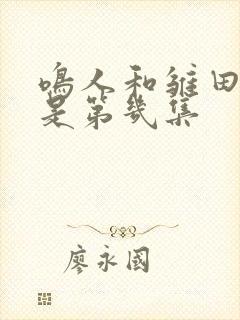 鳴人和雏田
是第幾集
廖永國